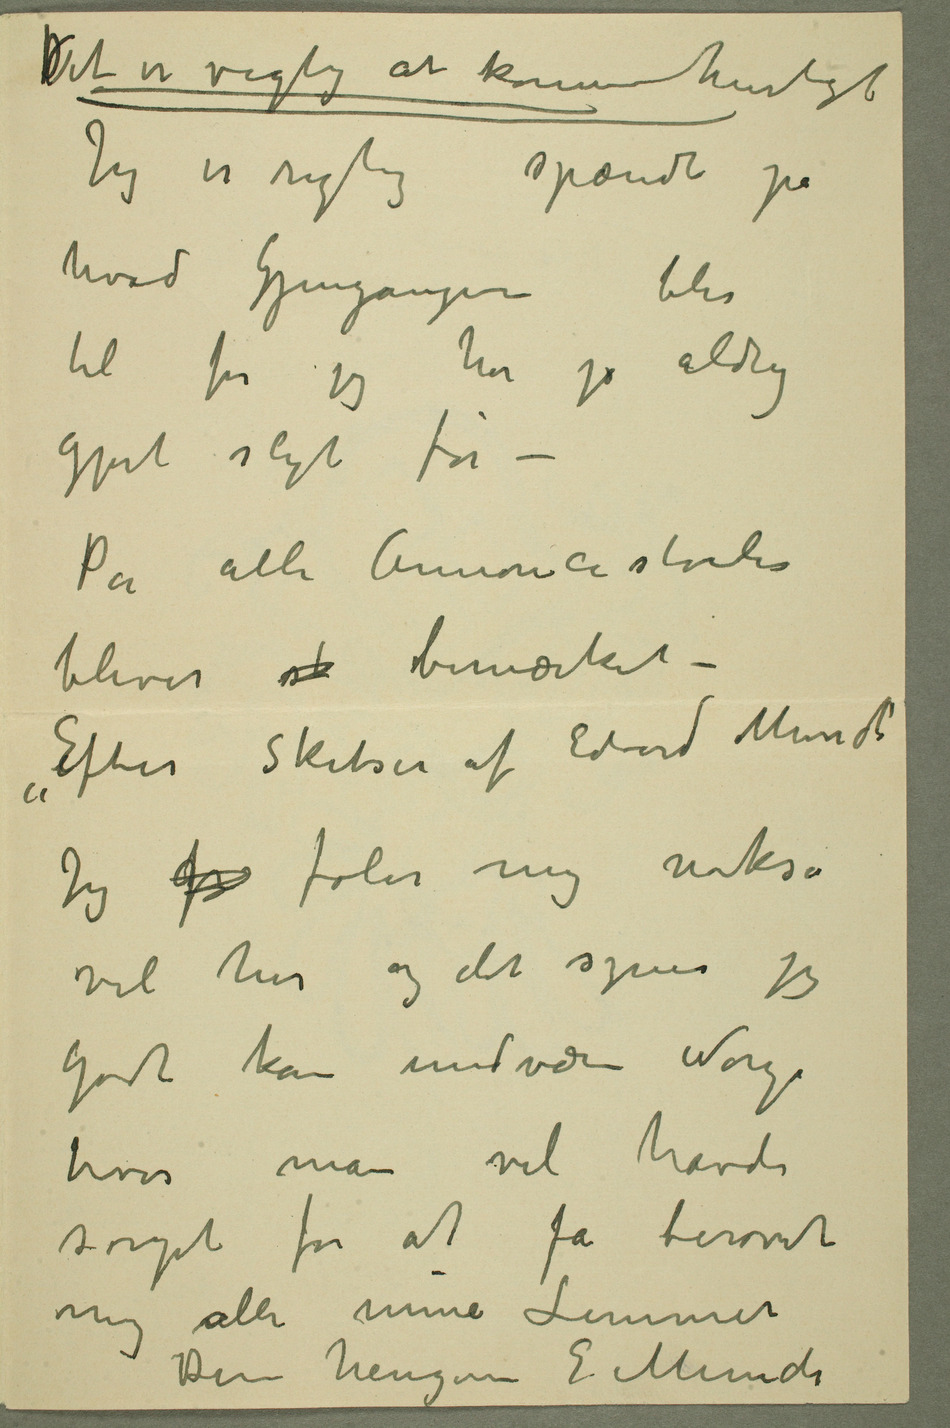 Det er vigtig at komme hurtigt
Jeg er rigtig spændt på
hvad Gjengangere blir
til for jeg har jo aldrig
gjort sligt før –
På alle Annoncestoler
bliver st bemærket –
„Efter Skitser af Edvard Munch“
Jeg fø føler mig nokså
vel her og det synes jeg
godt kan undvære Norge
hvor man vel havde
sørget for at få berøvet
mig alle mine Lemmer
Din hengivne E Munch